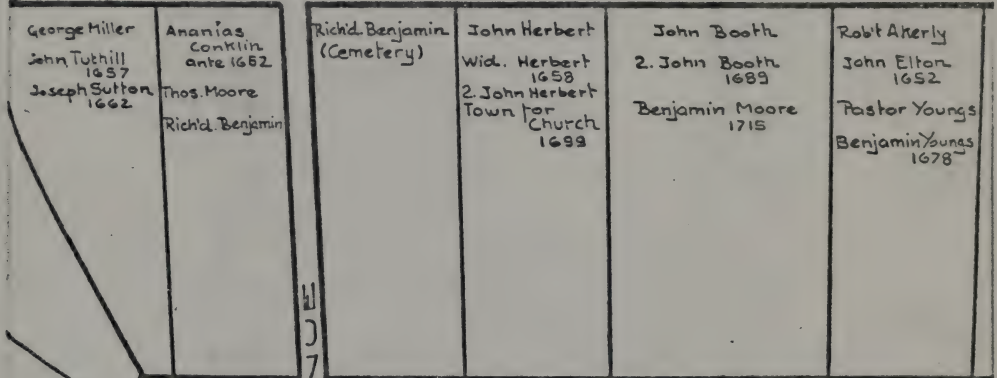 George Miller
John Tuthill
1657
Joseph Sutton
1662
Ananias
Conklin
ante 1652
Thos. Moore
Rich'd. Benjamin
Rich'd. Benjamin
(Cemetery)
John Herbert
Wid. Herbert
1658
2. John Herbert
Town for
Church
1699
John Booth
2. John Booth
1689
Benjamin Moore
1715
Rob't Akerly
John Elton
1652
Pastor Youngs
Benjamin Youngs
1678